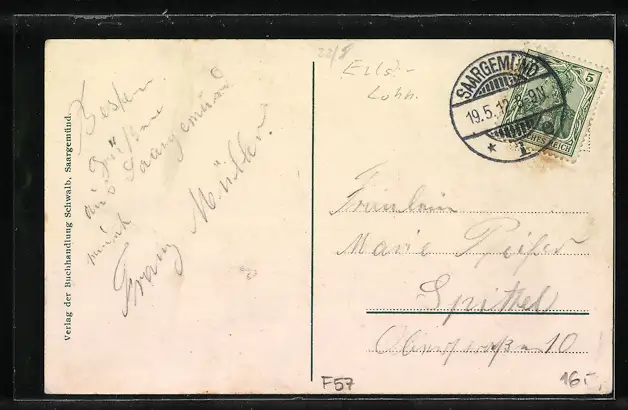 Verlag der Buchhandlung Schwalb, Saargemünd.
Besten
Grüßen
aus Saargemünd
Franz Müller.
22/5
Els.-
Lohn.
SAARGEMÜND
19.5.12. 8-9N
5
Fräulein
Marie Pfeifer
Spittel
10
F57
16.-